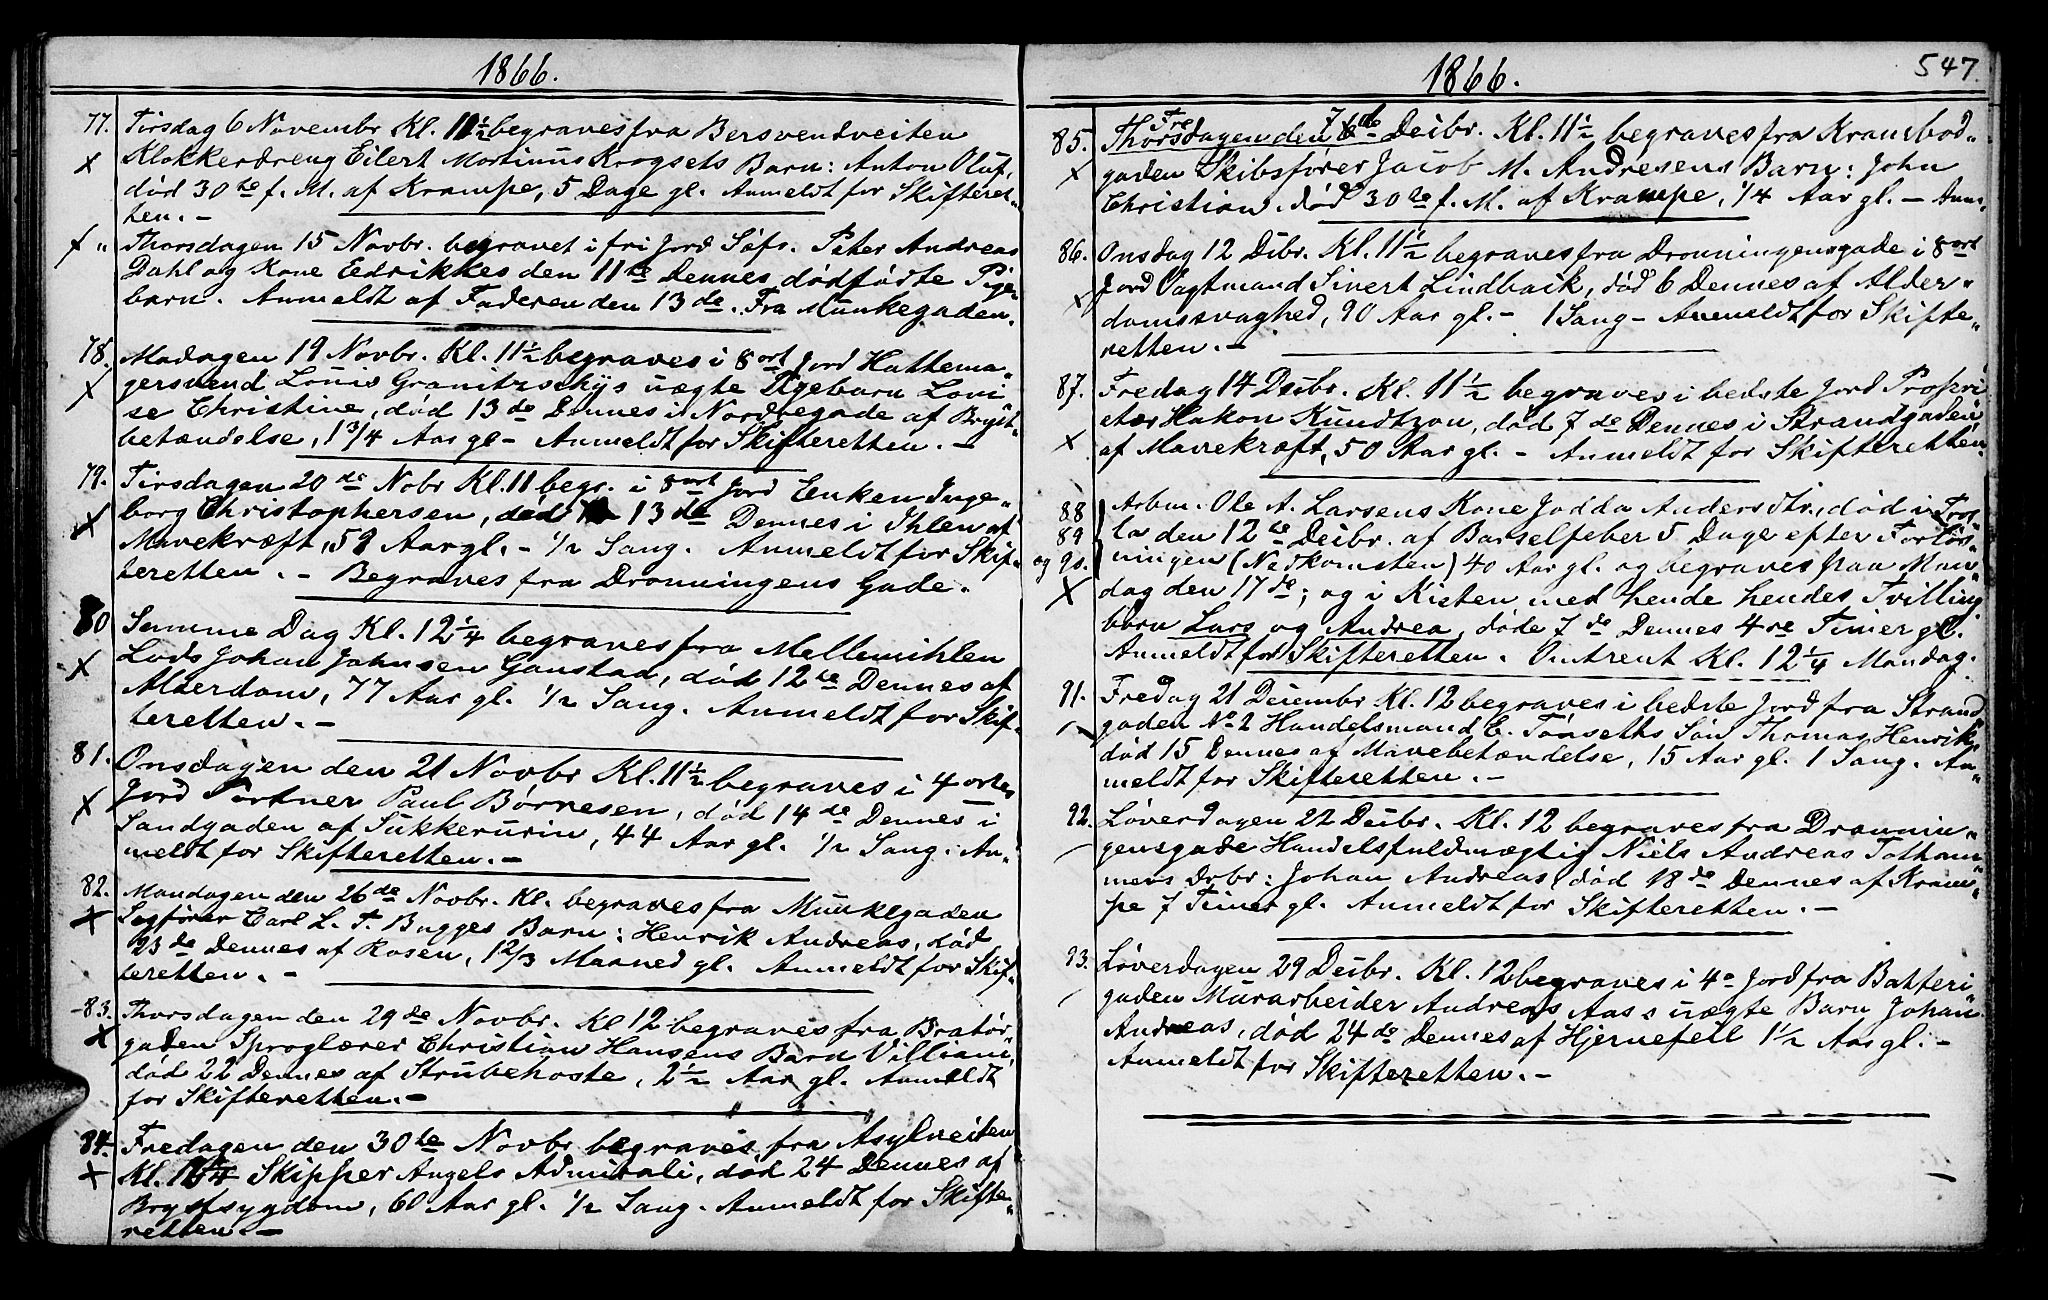 1866.
77. Tirsdag 6 Novembr Kl. 11½ begraves fra Bersvendveiten
Klokkerdreng Eilert Martinus Krogsets Barn: Anton Oluf,
død 30te f. M. af Krampe, 5 Dage gl. Anmeldt for Skifteret-
ten. -
" Thorsdagen 15 Novbr. begravet i fri Jord Søfr. Peter Andreas
Dahl og Kone Eedrikkes den 11te Dennes dødfødte Pige-
barn. Anmeldt af Faderen den 13de. Fra Munkegaden.
78. Madagen 19 Novbr. Kl. 11½ begraves i 8ort Jord Hattema-
gersvend Louis Granitzschys uægte Pigebarn Lovi
se Christine, død 13de Dennes i Nordregade af Bryst-
betændelse, 1 3/4 Aar gl - Anmeldt for Skifteretten. -
79. Tirsdagen 20de Nobr Kl. 11 begr. i 8ort Jord Enken Inge-
borg Christophersen, død 13de Dennes i Ihlen af
Mavekræft, 59 Aar gl. - ½ Sang. Anmeldt for Skif-
teretten. - Begraves fra Dronningens Gade.
80 Samme Dag Kl. 12¼ begraves fra Mellemihlen
Lods Johan Johnsen Ganstad, død 12te Dennes af
Alderdom, 77 Aar gl. ½ Sang. Anmeldt for Skif-
teretten. -
81. Onsdagen den 21 Novbr Kl. 11½ begraves i 4 ortes
Jord Portner Paul Børresen, død 14de Dennes i
Sandgaden af Sukkerurin, 44 Aar gl. ½ Sang. An-
meldt for Skifteretten. -
82. Mandagen den 26de Novbr. Kl. begraves fra Munkegaden
Sagfører Carl L. T. Bugges Barn: Henrik Andreas, død
23de Dennes af Rosen, 1 2/3 Maaned gl. Anmeldt for Skif-
teretten. -
83. Thorsdagen den 29de Novbr. Kl 12 begraves fra Bratør-
gaden Sproglærer Christian Hansens Barn Villiam,
død 22 Dennes af Strubehoste, 2½ Aar gl. Anmeldt
for Skifteretten. -
84. Fredagen den 30te Novbr begraves fra Asylveiten
Kl. Skipper Angels Admirali, død 24 Dennes af
Brystsygdom, 60 Aar gl. ½ Sang. Anmeldt for Skifte-
retten. -
1866.
547.
85. Fre 7
Thorsdagen den Decbr. Kl. 11½ begraves fra Krambod-
gaden Skibsfører Jacob M. Andresens Barn: John
Christian. død 30te f. M. af Krampe, ¼ Aar gl. - Anm.
86. Onsdag 12 Dcbr. Kl. 11½ begraves fra Dronningensgade i 8ort
Jord Vagtmand Sivert Lindbaik, død 6 Dennes af Alder-
domssvaghed, 90 Aar gl. - 1 Sang - Anmeldt for Skifte-
retten. -
87. Fredag 14 Decbr. Kl. 11½ begraves i bedste Jord Propri-
etær Hakon Kundtzon, død 7de Dennes i Strandgaden
af Mavekræft, 50 Aar gl. - Anmeldt for Skifteretten
88 Arbm. Ole A. Larsens Kone Jadda Andersdtr, død i
89 la den 12te Decbr. af Barselfeber 5 Dage efter Forløs-
og 90. ningen (Nedkomsten) 40 Aar gl. og begraves fra Man-
dag den 17de; og i Kisten med hende hendes Tvilling
børn Lars og Andrea, døde 7de Dennes 4re Timer gl.
Anmeldt for Skifteretten. Omtrent Kl. 12¼ Mandag.
91. Fredag 21 Decembr Kl. 12 begraves i bedste Jord fra Strand
gaden No 2 Handelsmand E. Tønseths Søn Thomas Henrik,
død 15 Dennes af Mavebetændelse, 15 Aar gl. 1 Sang. An-
meldt for Skifteretten. -
92. Løverdagen 22 Decbr. Kl. 12 begraves fra Dronnin-
gensgade Handelsfuldmægtig Niels Andreas Totham-
mers Drbr: Johan Andreas, død 18de Dennes af Kram-
pe 7 Timer gl. Anmeldt for Skifteretten. -
93. Løverdagen 29 Decbr. Kl. 12 begraves i 4o Jord fra Batteri
gaden Murarbeider Andreas Aas s uægte Barn Johan
Andreas, død 24de Dennes af Hjernefeil 1½ Aar gl. -
Anmeldt for Skifteretten. -